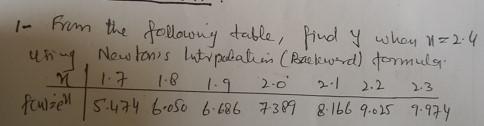 1- From the following table, find y when x=2.4
using Newton's Intrpolation (Backward) formula.
x 1.7 1.8 1.9 2.0 2.1 2.2 2.3
f(x)=eˣ 5.474 6.050 6.686 7.389 8.166 9.025 9.974